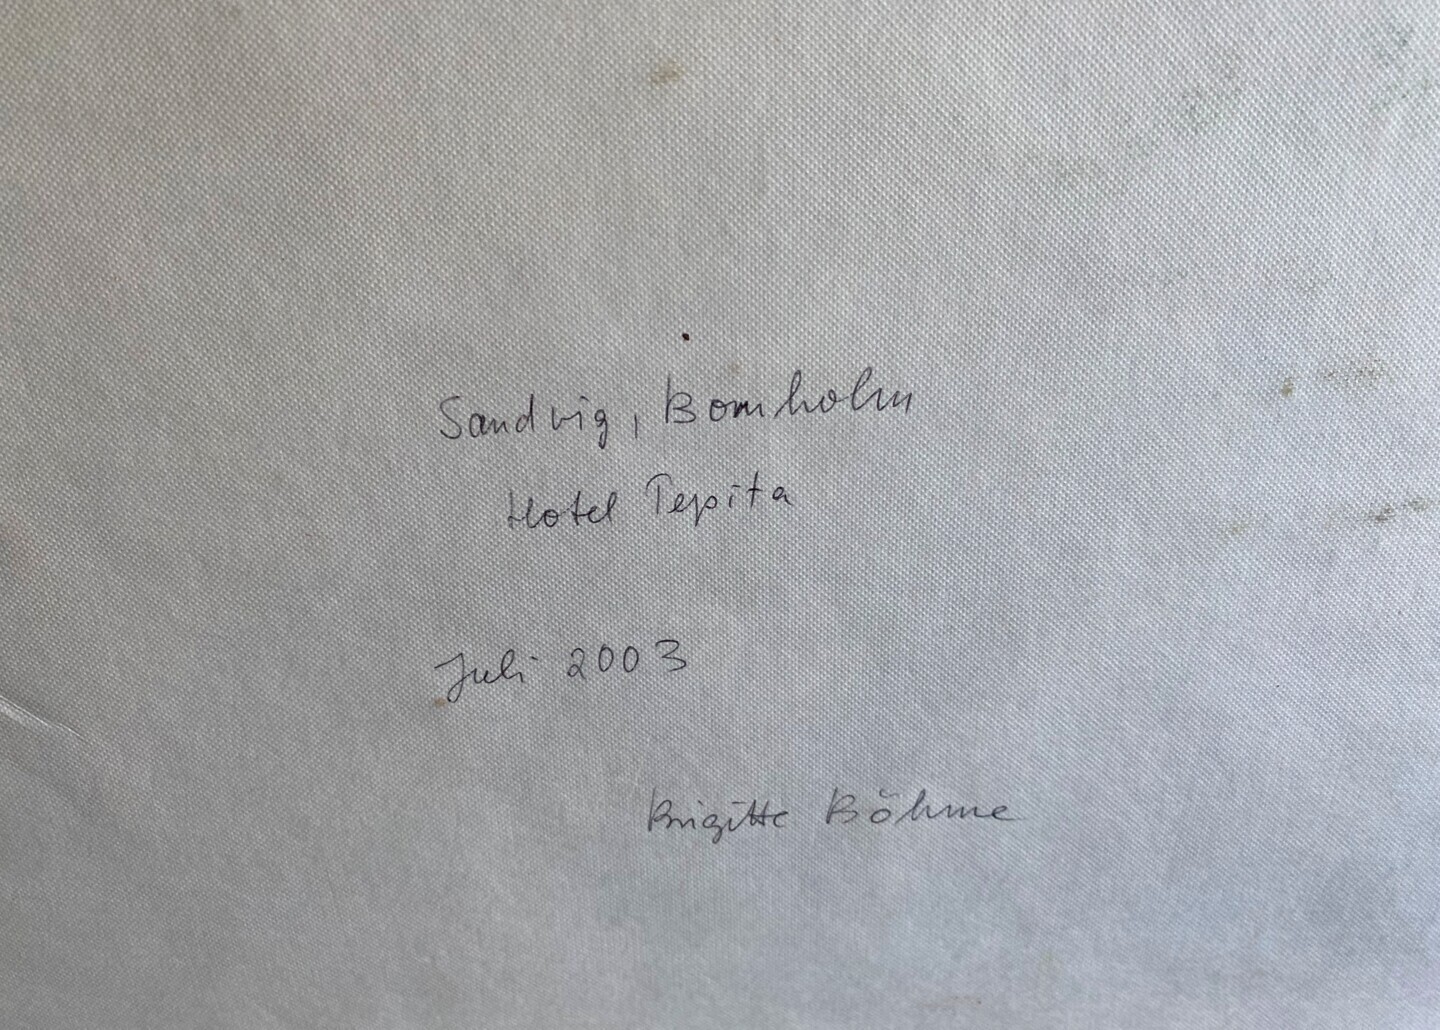 Sandvig, Bornholm
Hotel Pepita
Juli 2003
Brigitte Böhme